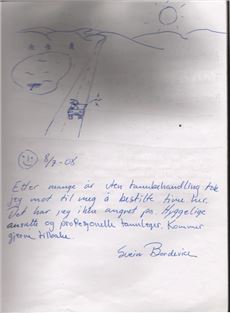 8/7-08
Etter mange år uten tannbehandling tok
jeg mot til meg å bestilte time her.
Det har jeg ikke angret på. Hyggelige
ansatte og profesjonelle tannleger. Kommer
gjerne tilbake.
Svein